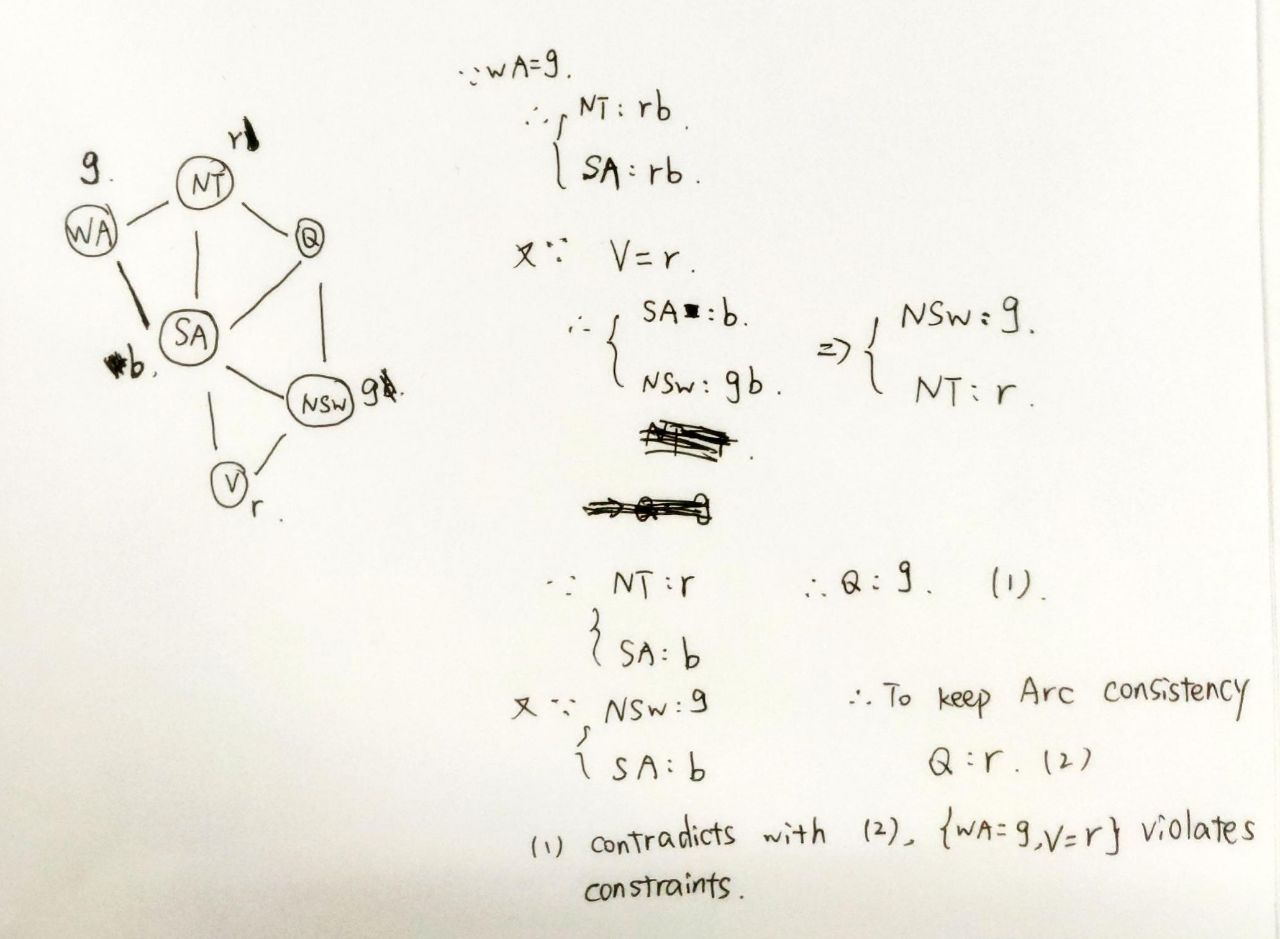 g.
r
NT
WA
Q
SA
b.
NSW
g
V
r.
∵ WA=g.
∴ { NT: rb.
SA: rb.
又∵ V=r.
∴ { SA: b.
NSW: gb.
⇒ { NSW: g.
NT: r.
∵ { NT: r
SA: b
∴ Q: g. (1).
又∵ { NSW: g
SA: b
∴ To keep Arc consistency
Q: r. (2)
(1) contradicts with (2), {WA=g,V=r} violates
constraints.